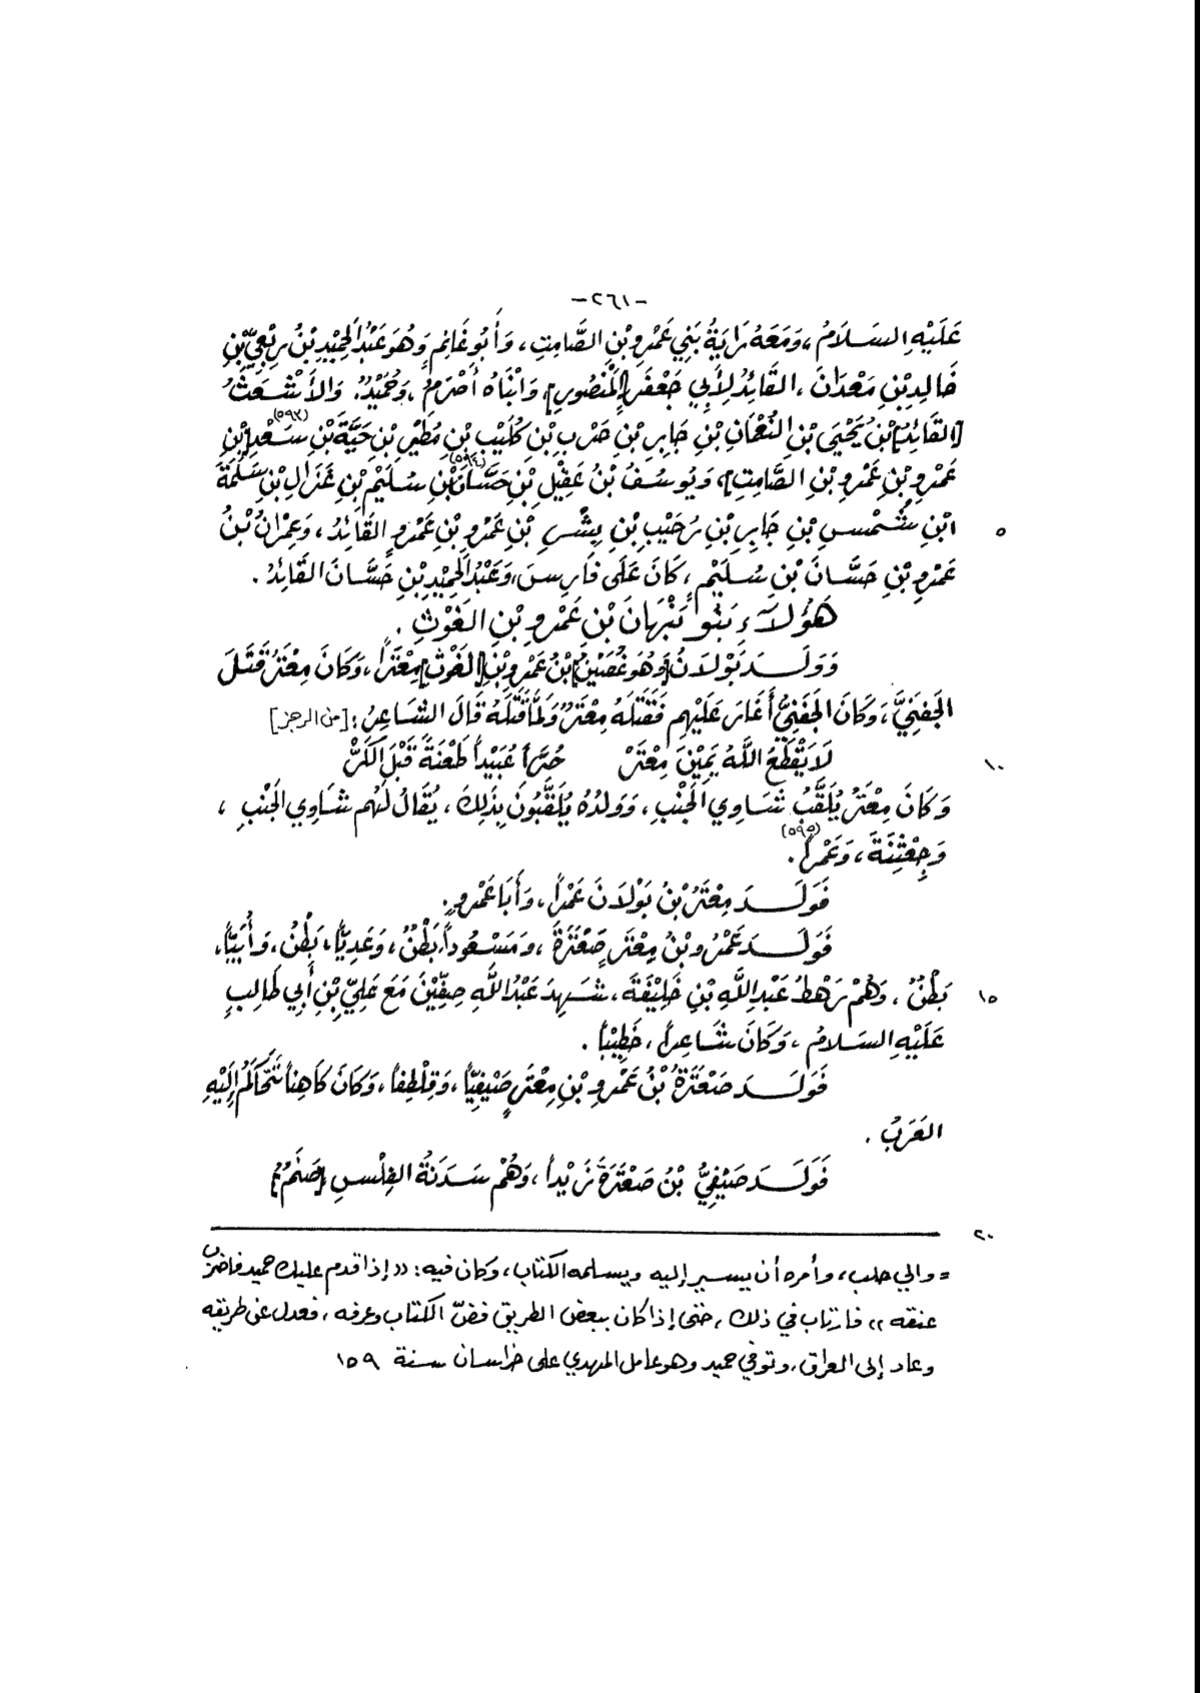 -٢٦١-
عَلَيْهِ السَّلَامُ، وَمَعَهُ رَايَةُ بَنِي عَمْرِو بْنِ الصَّامِتِ، وَأَبُو غَانِمٍ وَهُوَ عَبْدُ الحَمِيدِ بْنُ رِبْعِيِّ بْنِ
خَالِدِ بْنِ مَعْدَانَ، القَائِدُ لِأَبِي جَعْفَرٍ [المَنْصُورِ] وَابْنَاهُ أَصْرَمُ، وَحُمَيْدٌ. وَالأَشْعَثُ
[القَائِدُ] بْنُ يَحْيَى بْنِ النُّعْمَانِ بْنِ جَابِرِ بْنِ حَرْبِ بْنِ كُلَيْبِ بْنِ مُطَيْرِ بْنِ حَيَّةَ بْنِ سَعْدِ (٥٩٣) [بْنِ
عَمْرِو بْنِ عَمْرِو بْنِ الصَّامِتِ] وَيُوسُفُ بْنُ عَقِيلِ بْنِ حَسَّانَ (٥٩٤) بْنِ سُلَيْمِ بْنِ غَزَالِ بْنِ سَلَمَةَ
ابْنِ شُمْسِ بْنِ جَابِرِ بْنِ رُحَيْبِ بْنِ بِشْرِ بْنِ عَمْرِو بْنِ عَمْرٍو القَائِدُ، وَعِمْرَانُ بْنُ ٥
عَمْرِو بْنِ حَسَّانَ بْنِ سُلَيْمٍ، كَانَ عَلَى فَارِسَ، وَعَبْدُ الحَمِيدِ بْنِ حَسَّانَ القَائِدُ.
هَؤُلَاءِ بَنُو نَبْهَانَ بْنِ عَمْرِو بْنِ الغَوْثِ.
وَوَلَـــدَ بَوْلَانُ [وَهُوَ غُصَيْنُ] بْنُ عَمْرِو بْنِ [الغَوْثِ] مِعْتَراً، وَكَانَ مِعْتَرٌ قَتَلَ
الجَفْنِيَّ، وَكَانَ الجَفْنِيُّ أَغَارَ عَلَيْهِم فَقَتَلَهُ مِعْتَرٌ وَلَمَّا قَتَلَهُ قَالَ الشَّاعِرُ: [من الرجز]
لَا يَقْطَعُ اللَّهُ يَمِيْنَ مِعْتَرْ حُرّاً عُبَيْداً طَعْنَةً قَبْلَ الكَرّْ ١٠
وَكَانَ مِعْتَرٌ يُلَقَّبُ شَاوِي الجَنْبِ، وَوَلَدُهُ يُلَقَّبُونَ بِذَلِكَ، يُقَالُ لَهُم شَاوِي الجَنْبِ،
وَجِعْثِنَةَ، وَعَمْراً (٥٩٥).
فَوَلَـــدَ مِعْتَرُ بْنُ بَوْلَانَ عَمْراً، وَأَبَا عَمْرٍو.
فَوَلَـــدَ عَمْرُو بْنُ مِعْتَرٍ صَعْتَرَةَ، وَمَسْعُوداً، بَطْنٌ، وَعَدِيّاً، بَطْنٌ، وَأُبَيّاً،
بَطْنٌ، وَهُمْ رَهْطُ عَبْدِ اللَّهِ بْنِ خَلِيْفَةَ، شَهِدَ عَبْدُ اللَّهِ صِفِّيْنَ مَعَ عَلِيِّ بْنِ أَبِي طَالِبٍ ١٥
عَلَيْهِ السَّلَامُ، وَكَانَ شَاعِراً، خَطِيْباً.
فَوَلَـــدَ صَعْتَرَةُ بْنُ عَمْرِو بْنِ مِعْتَرٍ صَيْفِيّاً، وَقِلْطِفاً، وَكَانَ كَاهِناً تَتَحَاكَمُ إِلَيْهِ
العَرَبُ.
فَوَلَـــدَ صَيْفِيُّ بْنُ صَعْتَرَةَ زَيْداً، وَهُمْ سَدَنَةُ الفِلْسِ [صَنَمٌ]
٢٠
= والي حلب، وأمره أن يسير إليه ويسلمه الكتاب، وكان فيه: ((إذا قدم عليك حميد فاضرب
عنقه)) فارتاب في ذلك، حتى إذا كان ببعض الطريق فضّ الكتاب وعرفه، فعدل عن طريقه
وعاد إلى العراق، وتوفي حميد وهو عامل المهدي على خراسان سنة ١٥٩